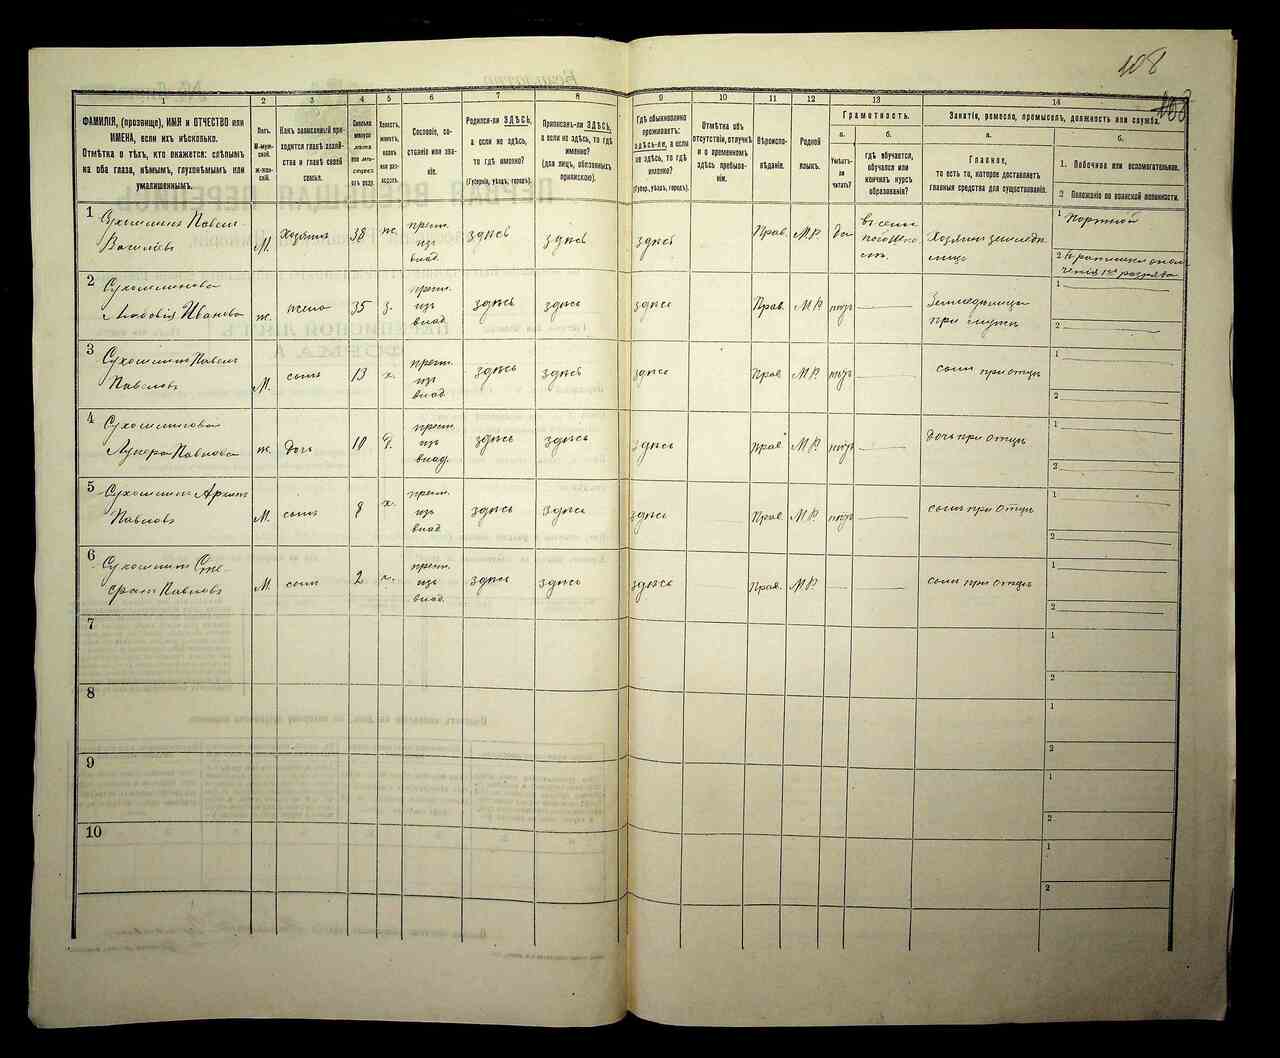 108
108
1
2
3
4
5
6
7
8
9
10
11
12
13
14
ФАМИЛІЯ, (прозвище), ИМЯ и ОТЧЕСТВО или
ИМЕНА, если ихъ нѣсколько.
Отмѣтка о тѣхъ, кто окажется: слѣпымъ
на оба глаза, нѣмымъ, глухонѣмымъ или
умалишеннымъ.
Полъ.
М-муж-
ской.
Ж-жен-
скій.
Какъ записанный при-
ходится главѣ хозяй-
ства и главѣ своей
семьи.
Сколько
минуло
лѣтъ
или мѣ-
сяцевъ
отъ роду.
Холостъ,
женатъ,
вдовъ
или раз-
веденъ.
Сословіе, со-
стояніе или зва-
ніе.
Родился-ли ЗДѢСЬ,
а если не здѣсь,
то гдѣ именно?
(Губернія, уѣздъ, городъ).
Приписанъ-ли ЗДѢСЬ,
а если не здѣсь, то гдѣ
именно?
(для лицъ, обязанныхъ
припискою).
Гдѣ обыкновенно
проживаетъ:
здѣсь-ли, а если
не здѣсь, то гдѣ
именно?
(Губер., уѣздъ, городъ).
Отмѣтка объ
отсутствіи, отлучкѣ
и о временномъ
здѣсь пребыва-
ніи.
Вѣроиспо-
вѣданіе.
Родной
языкъ.
Грамотность.
а.
Умѣетъ-
ли
читать?
б.
гдѣ обучается,
обучался или
кончилъ курсъ
образованія?
Занятіе, ремесло, промыселъ, должность или служба.
а.
Главное,
то есть то, которое доставляетъ
главныя средства для существованія.
б.
1. Побочное или вспомогательное.
2 Положеніе по воинской повинности.
1
Павелъ
Васильевъ
М.
Хозяинъ
38
ж.
крест.
изъ
влад.
здѣсь
здѣсь
здѣсь
Прав.
М.Р.
да
Хозяинъ земледѣ
лецъ
1 Портной
2
1го разряда
2
Сухолинова
Любовія Иванова
ж.
жена
35
з.
крест.
изъ
влад.
здѣсь
здѣсь
здѣсь
Прав.
М.Р.
нѣтъ
при мужѣ
1
2
3
Павелъ
Павловъ
М.
сынъ
13
х.
крест.
изъ
влад.
здѣсь
здѣсь
здѣсь
Прав
М.Р.
нѣтъ
сынъ при отцѣ
1
2
4
Павлова
ж.
дочь
10
д.
крест.
изъ
влад.
здѣсь
здѣсь
здѣсь
Прав
М.Р.
нѣтъ
дочь при отцѣ
1
2
5
Архипъ
Павловъ
М.
сынъ
8
х.
крест.
изъ
влад.
здѣсь
здѣсь
здѣсь
Прав.
М.Р.
нѣтъ
сынъ при отцѣ
1
2
6
Павловъ
М.
сынъ
2
х.
крест.
изъ
влад.
здѣсь
здѣсь
здѣсь
Прав.
М.Р.
сынъ при отцѣ
1
2
7
1
2
8
1
2
9
1
2
10
1
2